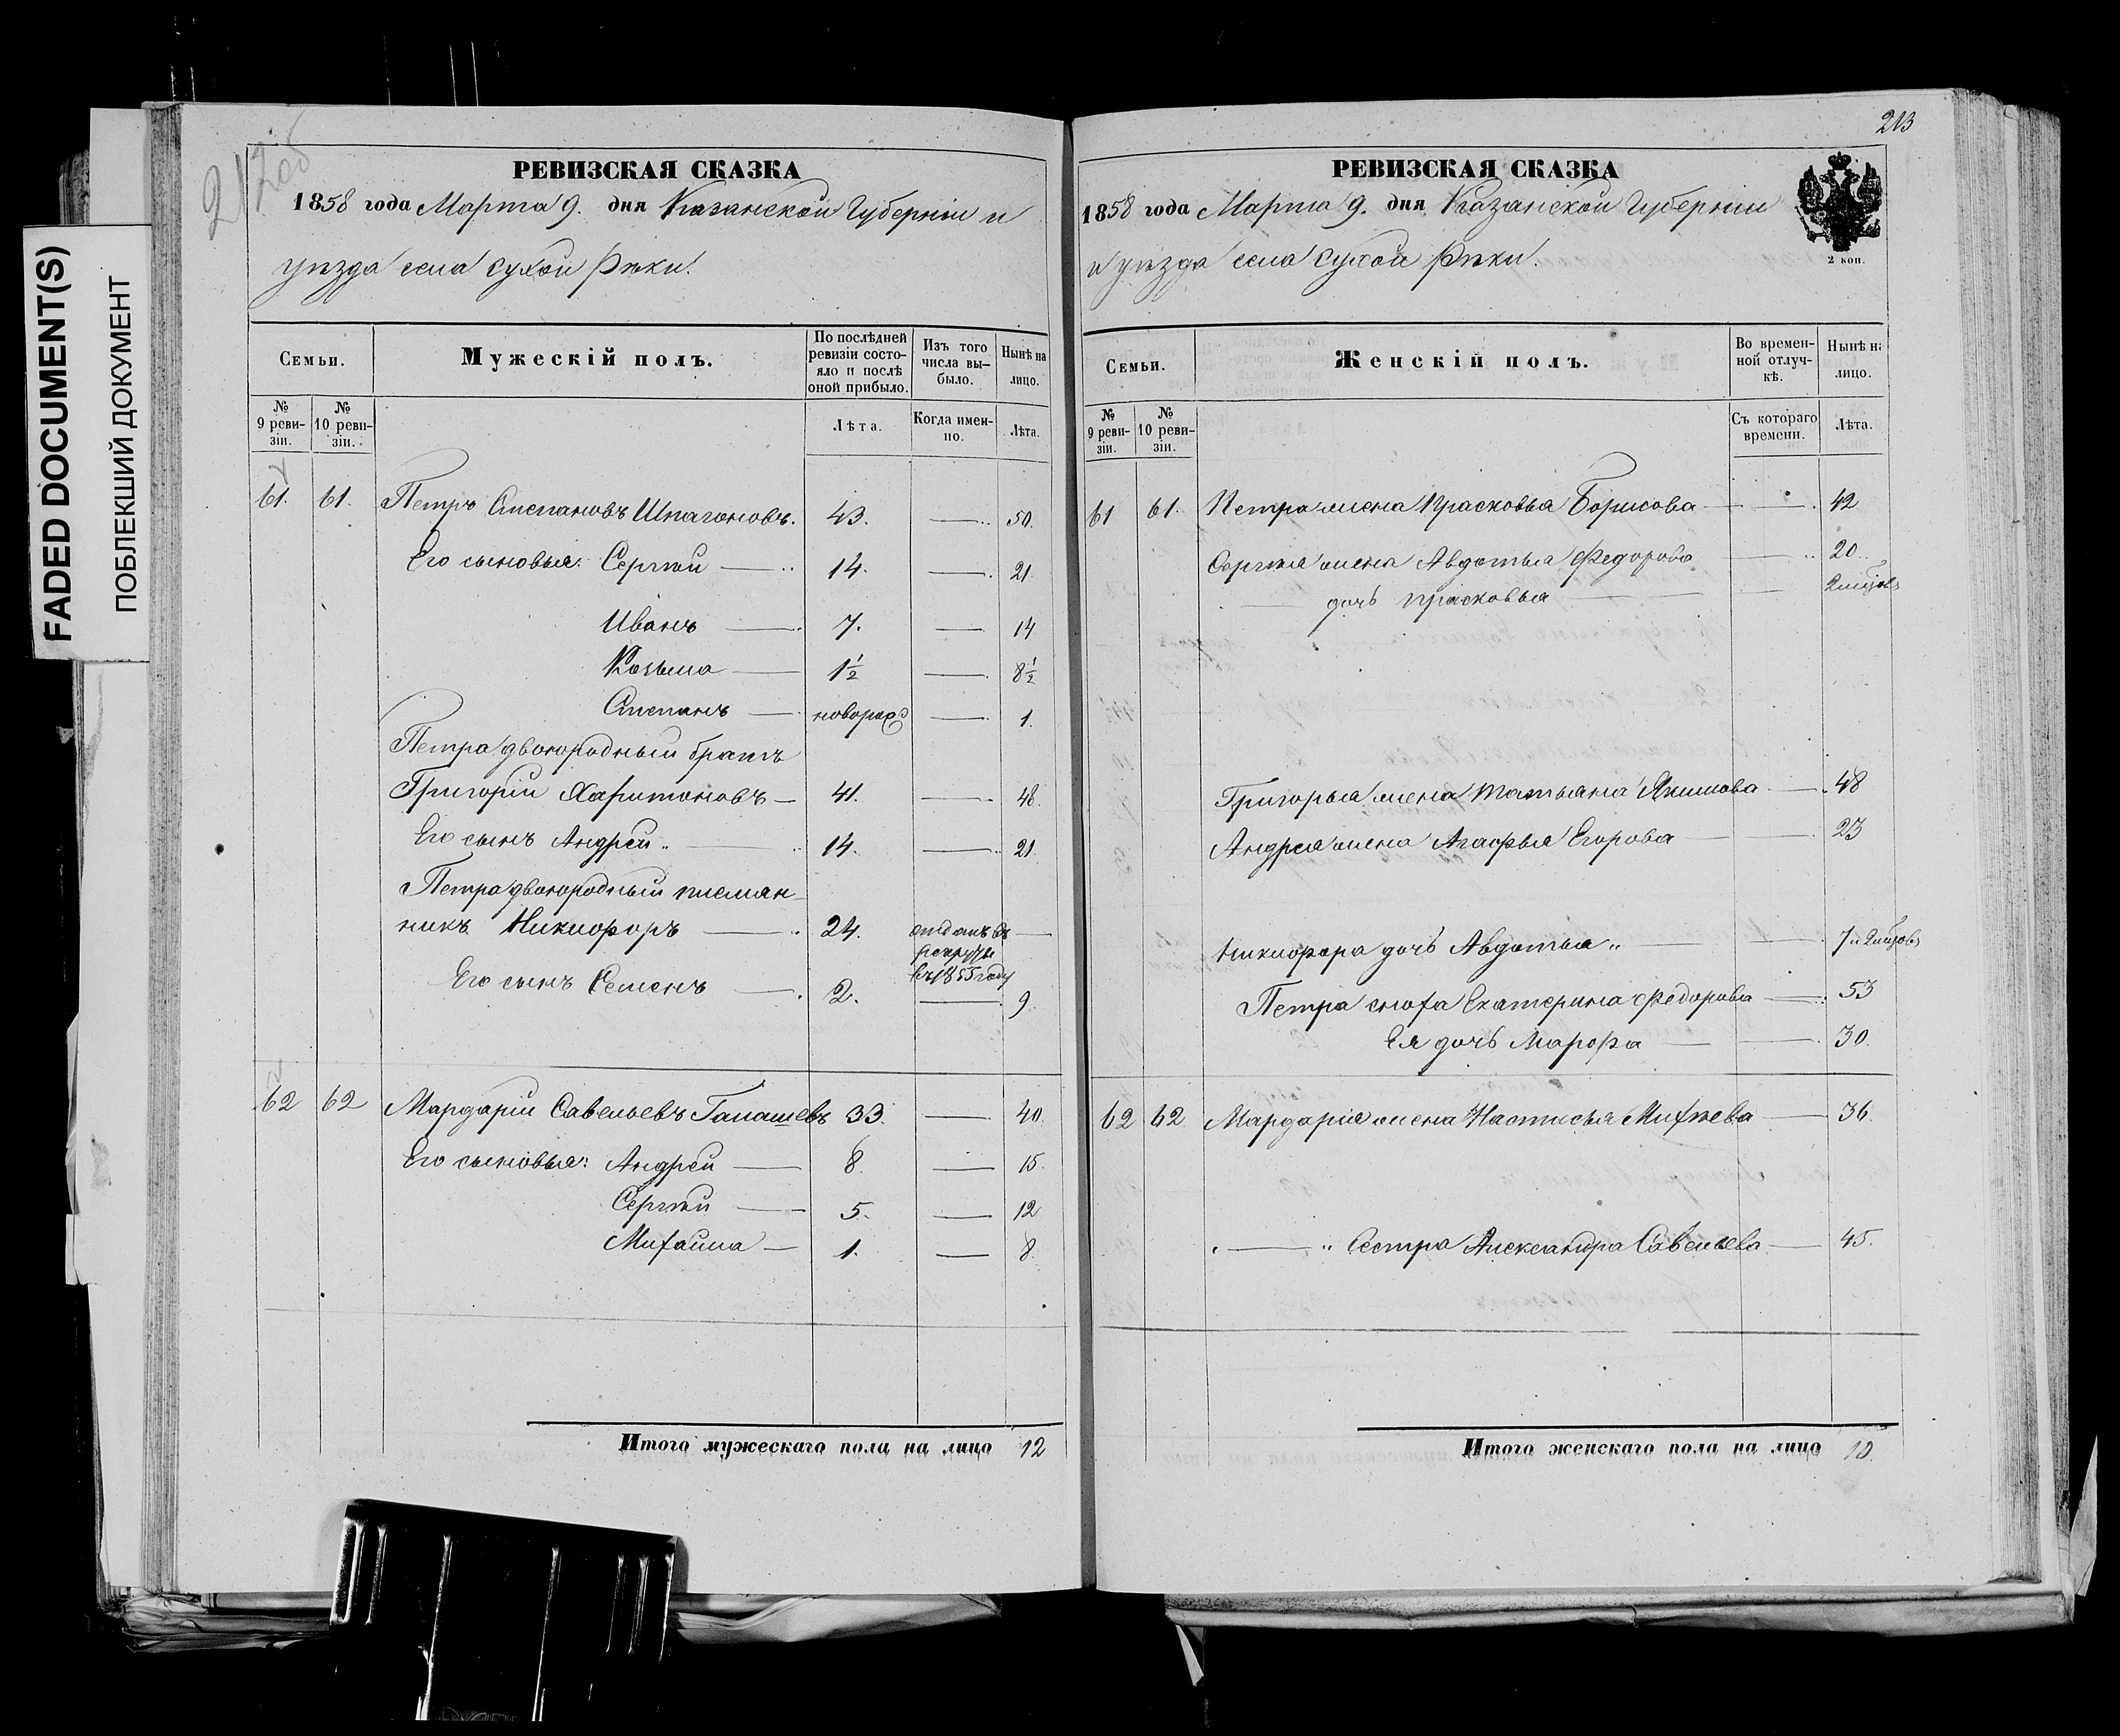 FADED DOCUMENT(S)
ПОБЛЕКШИЙ ДОКУМЕНТ
212об
РЕВИЗСКАЯ СКАЗКА
1858 года Марта 9. дня Казанской Губерніи и
уѣзда села Сухой Рѣки.
Семьи.
Мужескій полъ.
По послѣдней ревизіи состояло и послѣ оной прибыло.
Изъ того числа выбыло.
Нынѣ на лицо.
№ 9 ревизіи.
№ 10 ревизіи.
Лѣта.
Когда именно.
Лѣта.
61. 61. Петръ Степановъ Шпагоновъ. 43. 50.
Его сыновья: Сергѣй 14. 21.
Иванъ 7. 14
Козьма 1½ 8½
Степанъ новорожд 1.
Петра двоюродный братъ
Григорій Харитоновъ 41. 48.
Его сынъ Андрей 14. 21.
Петра двоюродный племян-
никъ Никифоръ 24. отданъ въ рекруты въ 1855 году
Его сынъ Семенъ 2. 9.
62 62 Мардарій Савельевъ Галашевъ 33. 40.
Его сыновья: Андрей 8. 15.
Сергѣй 5. 12
Михайла 1. 8.
Итого мужескаго пола на лицо 12
213
РЕВИЗСКАЯ СКАЗКА
1858 года Марта 9. дня Казанской Губерніи
и уѣзда села Сухой Рѣки.
2 коп.
Семьи.
Женскій полъ.
Во временной отлучкѣ.
Нынѣ на лицо.
№ 9 ревизіи.
№ 10 ревизіи.
Съ котораго времени.
Лѣта.
61 61. Петра жена Прасковья Борисова 42
Сергѣя жена Авдотья Федорова 20.
дочь Прасковья 2 мѣсяцовъ
Григорья жена Татьяна Якимова 48
Андрея жена Агафья Егорова 23
Никифора дочь Авдотья 7 и 2 мѣсяцовъ
Петра сноха Екатерина Федорова 53
Ея дочь Марфа 30.
62 62. Мардарія жена Настасья Михѣева 36.
" Сестра Александра Савельева 45.
Итого женскаго пола на лицо 10.